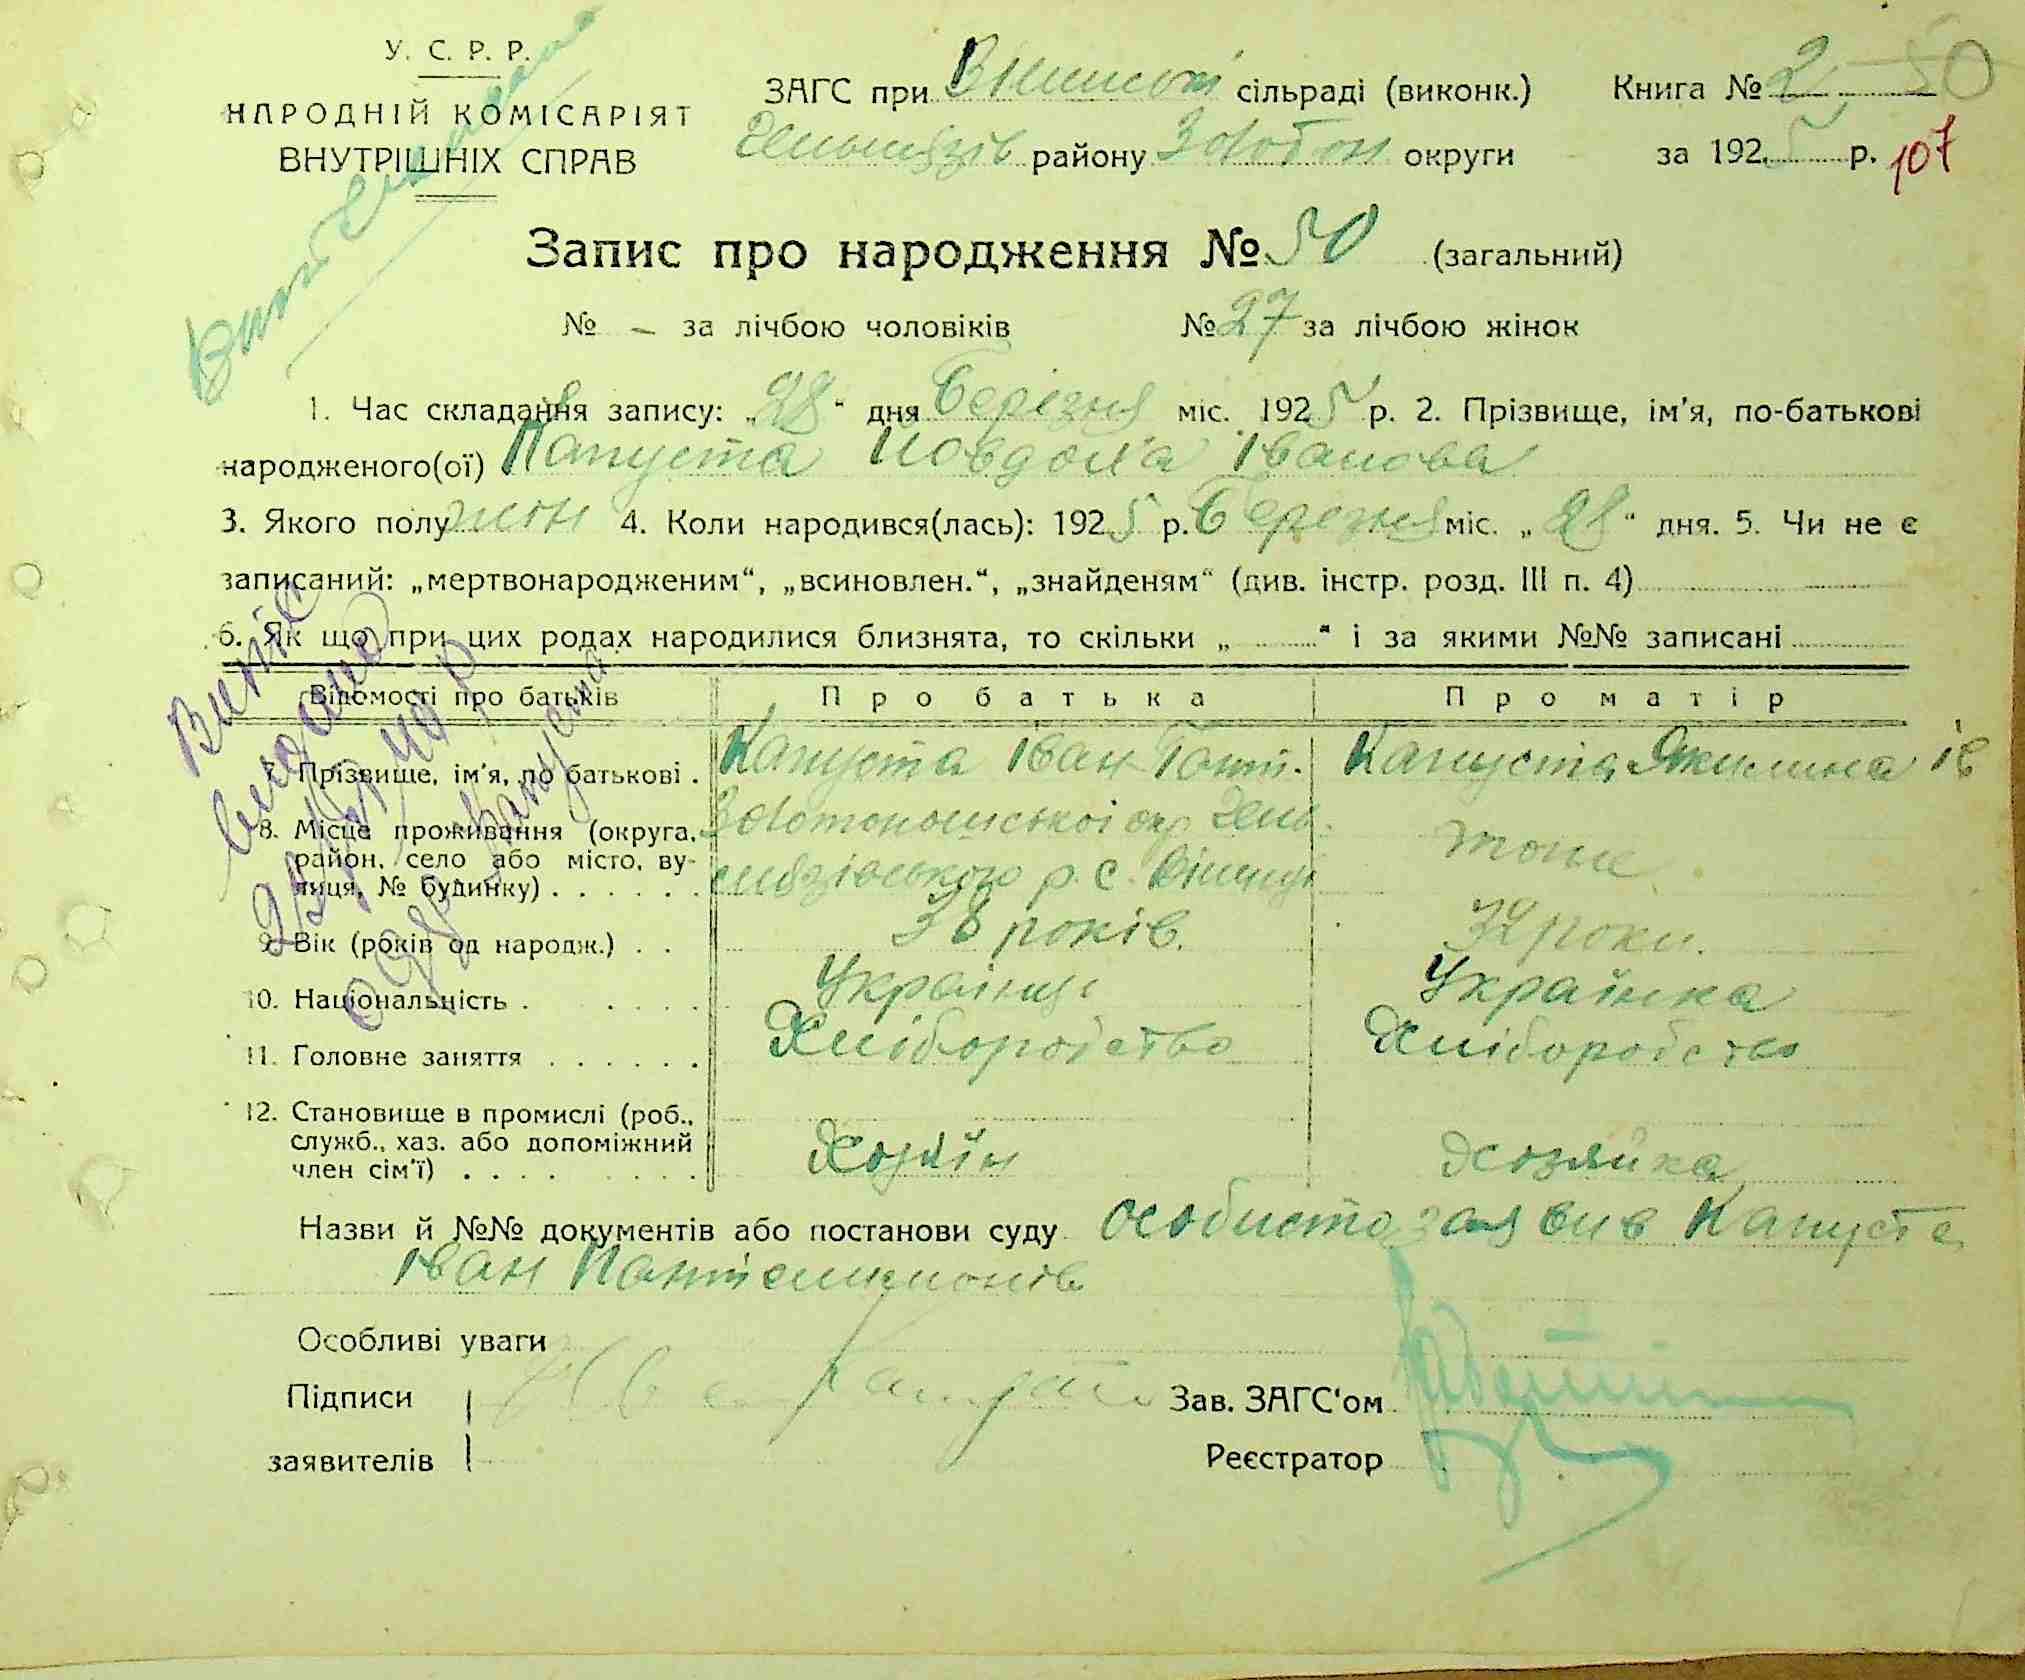 У. С. Р. Р.
НАРОДНІЙ КОМІСАРІЯТ
ВНУТРІШНІХ СПРАВ
ЗАГС при сільраді (виконк.) Книга № 2 50
району Золотон округи за 1925 р. 107
Запис про народження № 50 (загальний)
№ – за лічбою чоловіків № 27 за лічбою жінок
1. Час складання запису: „28“ дня Березня міс. 1925 р. 2. Прізвище, ім'я, по-батькові
народженого(ої) Капуста Иовдоха Іванова
3. Якого полу жін 4. Коли народився(лась): 1925 р. Березня міс. „28“ дня. 5. Чи не є
записаний: „мертвонародженим“, „всиновлен.“, „знайденям“ (див. інстр. розд. III п. 4)
6. Як що при цих родах народилися близнята, то скільки „ “ і за якими №№ записані
Відомості про батьків Про батька Про матір
7. Прізвище, ім'я, по батькові . Капуста Іван Пант. Капуста Якилина Ів
8. Місце проживання (округа, район, село або місто, вулиця, № будинку) . . . . . . Золотоношської окр. р. с. тоже
9. Вік (років од народж.) . . 38 років. 32 роки.
10. Національність . . . . . Українць Українка
11. Головне заняття . . . . . . Хліборобство Хліборобство
12. Становище в промислі (роб., служб., хаз. або допоміжний член сім'ї) . . . . . . . . Хозяїн Хозяйка
Назви й №№ документів або постанови суду особисто заявив Капуста
Іван Пантелимонів
Особливі уваги
Підписи Капуста Зав. ЗАГС'ом
заявителів Реєстратор
Витяг
видано